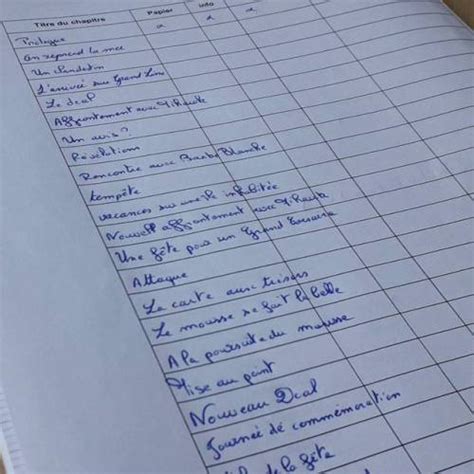 Titre du chapitre Papier info
Prologue x x x
On reprend la mer
Un clandestin
L'arrivée sur Grand Line
Le deal
Affrontement avec Mihawk
Un avis?
Révélations
Rencontre avec Barbe Blanche
tempête
vacances sur une île inhabitée
Nouvell affrontement avec Mihawk
Une fête pour un Grand Corsaire
Attaque
La carte aux trésors
Le mousse se fait la belle
A la poursuite du mousse
Mise au point
Nouveau Deal
Journée de commémoration
de la fête